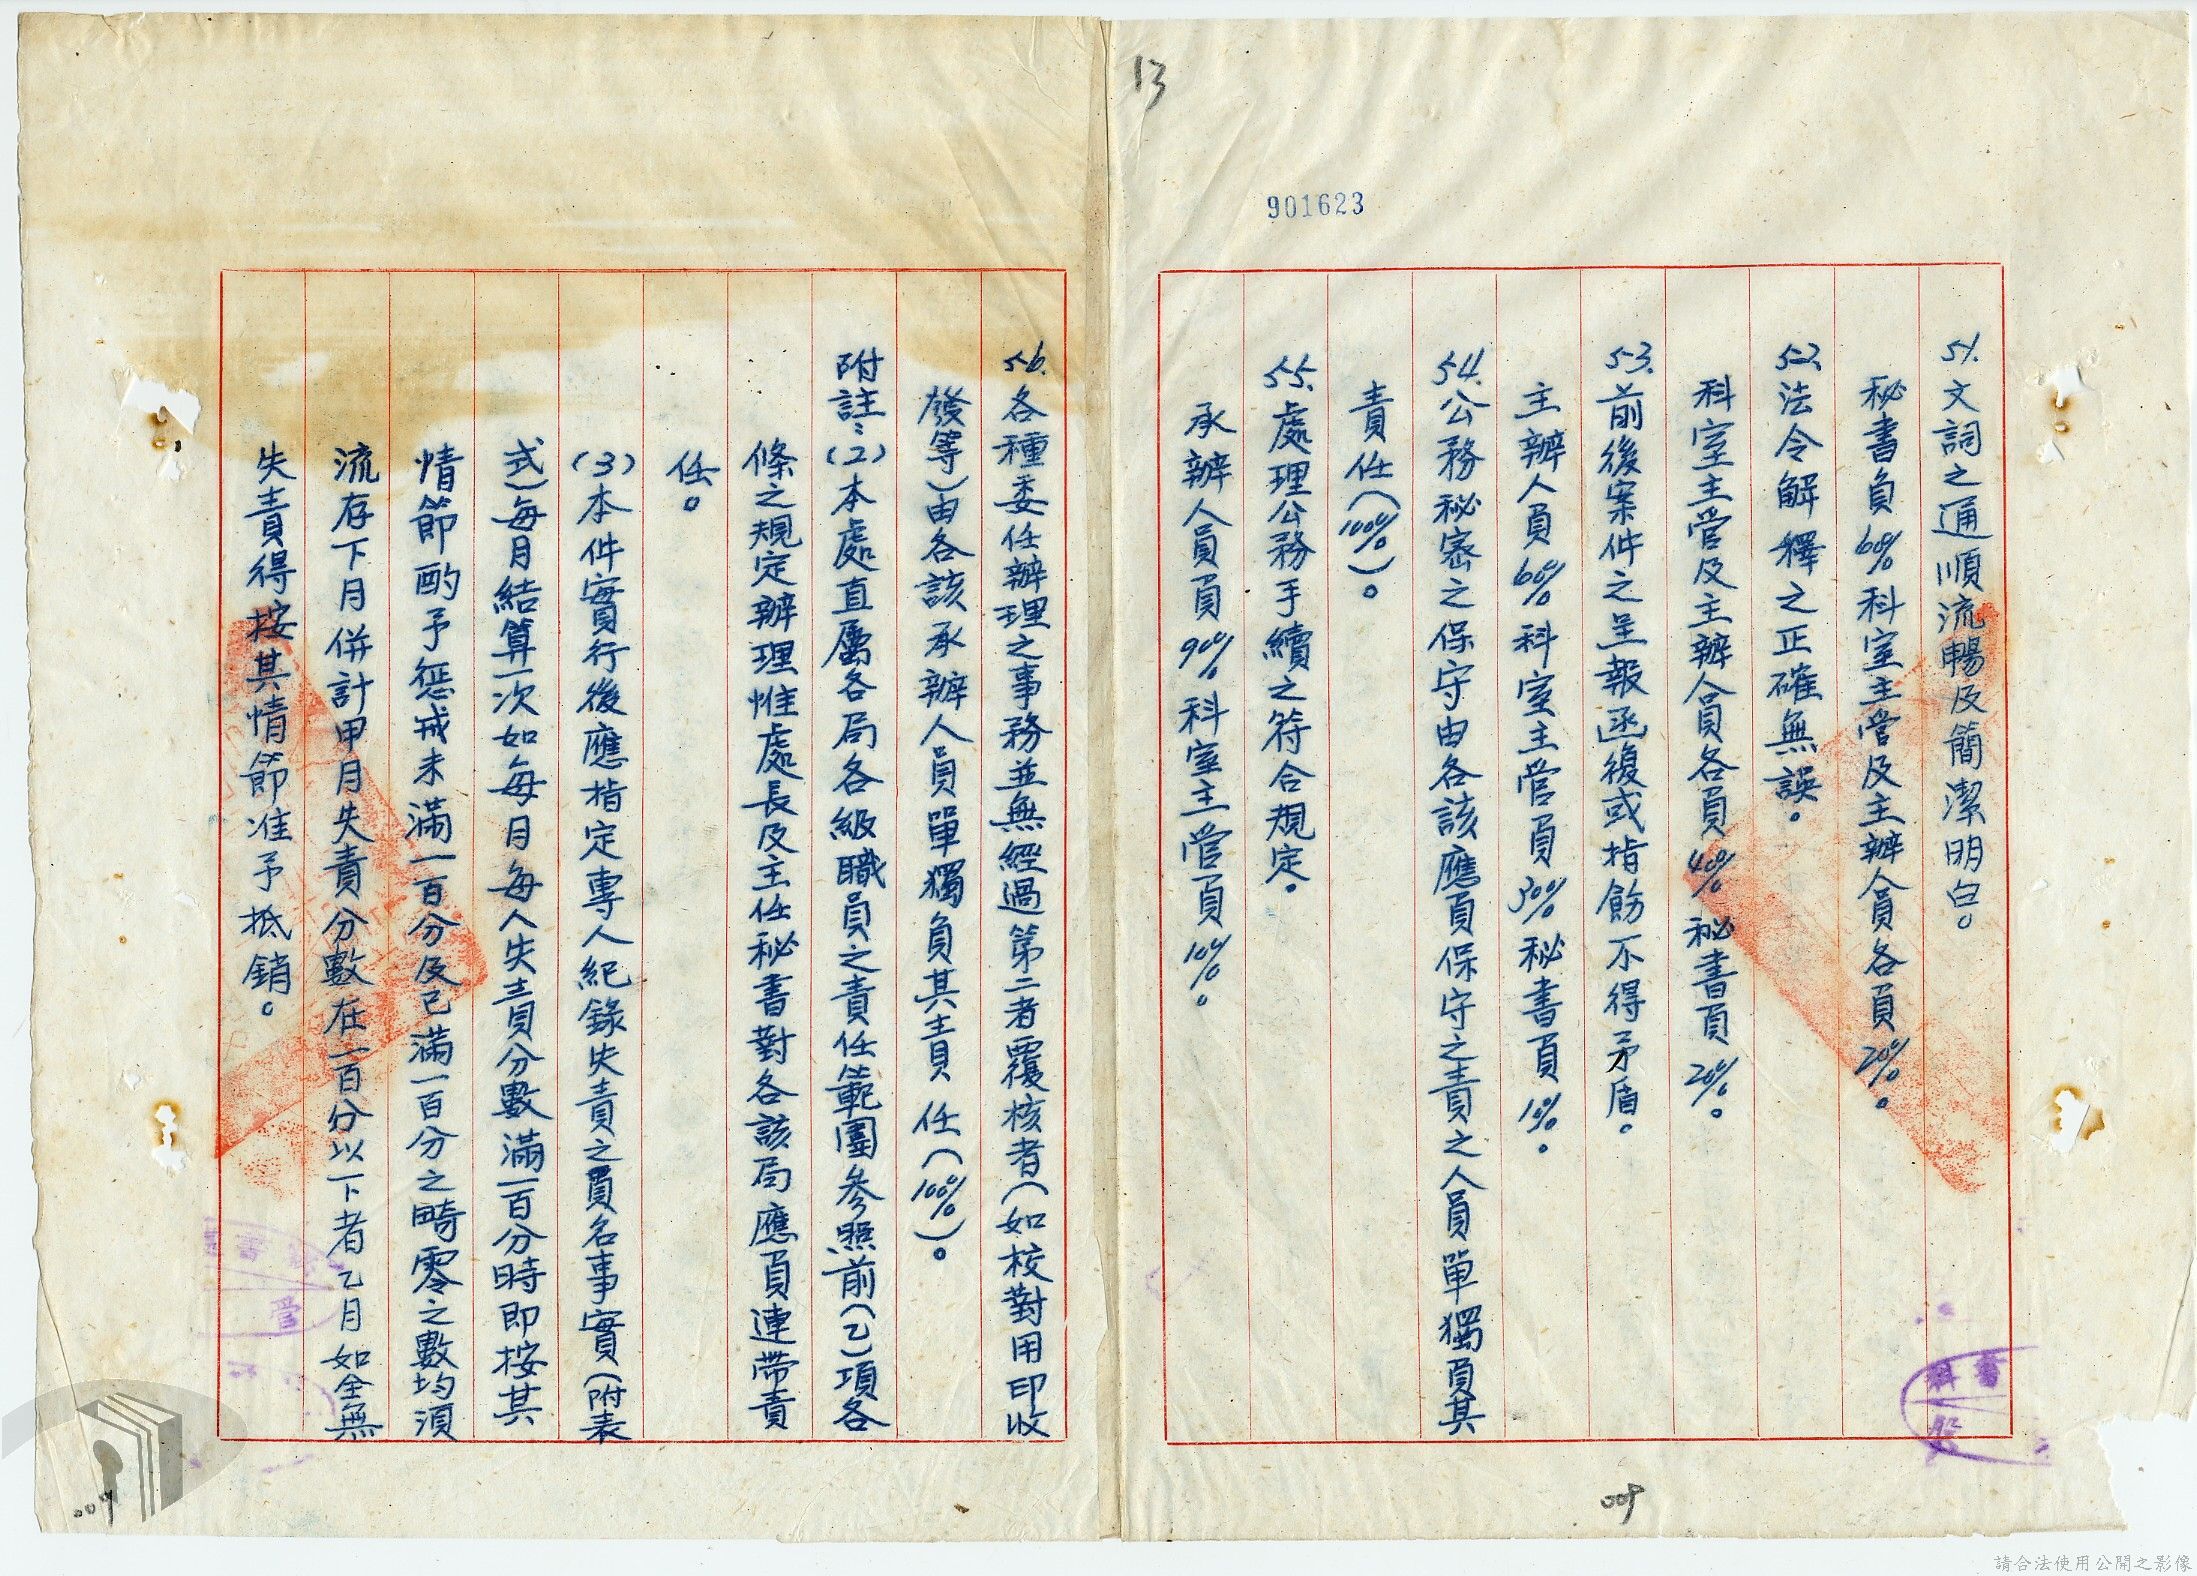 13
901623
51.文詞之通順流暢及簡潔明白。
秘書負60%科室主管及主辦人員各負20%。
52.法令解釋之正確無誤。
科室主管及主辦人員各負40%秘書負20%。
53.前後案件之呈報函復或指飭不得矛盾。
主辦人員60%科室主管負30%秘書負10%。
54.公務秘密之保守由各該應負保守之責之人員單獨負其
責任(100%)。
55.處理公務手續之符合規定。
承辦人員負90%科室主管負10%。
56.各種委任辦理之事務並無經過第二者覆核者(如校對用印收
發等)由各該承辦人員單獨負其責任(100%)。
附註:(2)本處直屬各局各級職員之責任範圍參照前(乙)項各
條之規定辦理惟處長及主任秘書對各該局應負連帶責
任。
(3)本件實行後應指定專人紀錄失責之員名事實(附表
式)每月結算一次如每月每人失責分數滿一百分時即按其
情節酌予懲戒未滿一百分及已滿一百分之畸零之數均須
流存下月併計甲月失責分數在一百分以下者乙月如全無
失責得按其情節准予抵銷。
書科
009
請合法使用公開之影像